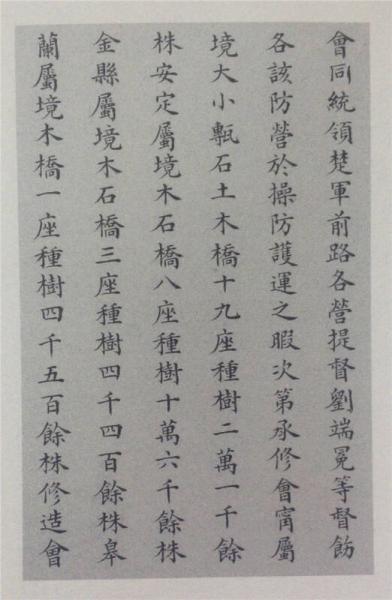 會同統領楚軍前路各營提督劉端冕等督飭
各該防營於操防護運之暇次第承修會甯屬
境大小甎石土木橋十九座種樹二萬一千餘
株安定屬境木石橋八座種樹十萬六千餘株
金縣屬境木石橋三座種樹四千四百餘株皋
蘭屬境木橋一座種樹四千五百餘株修造會